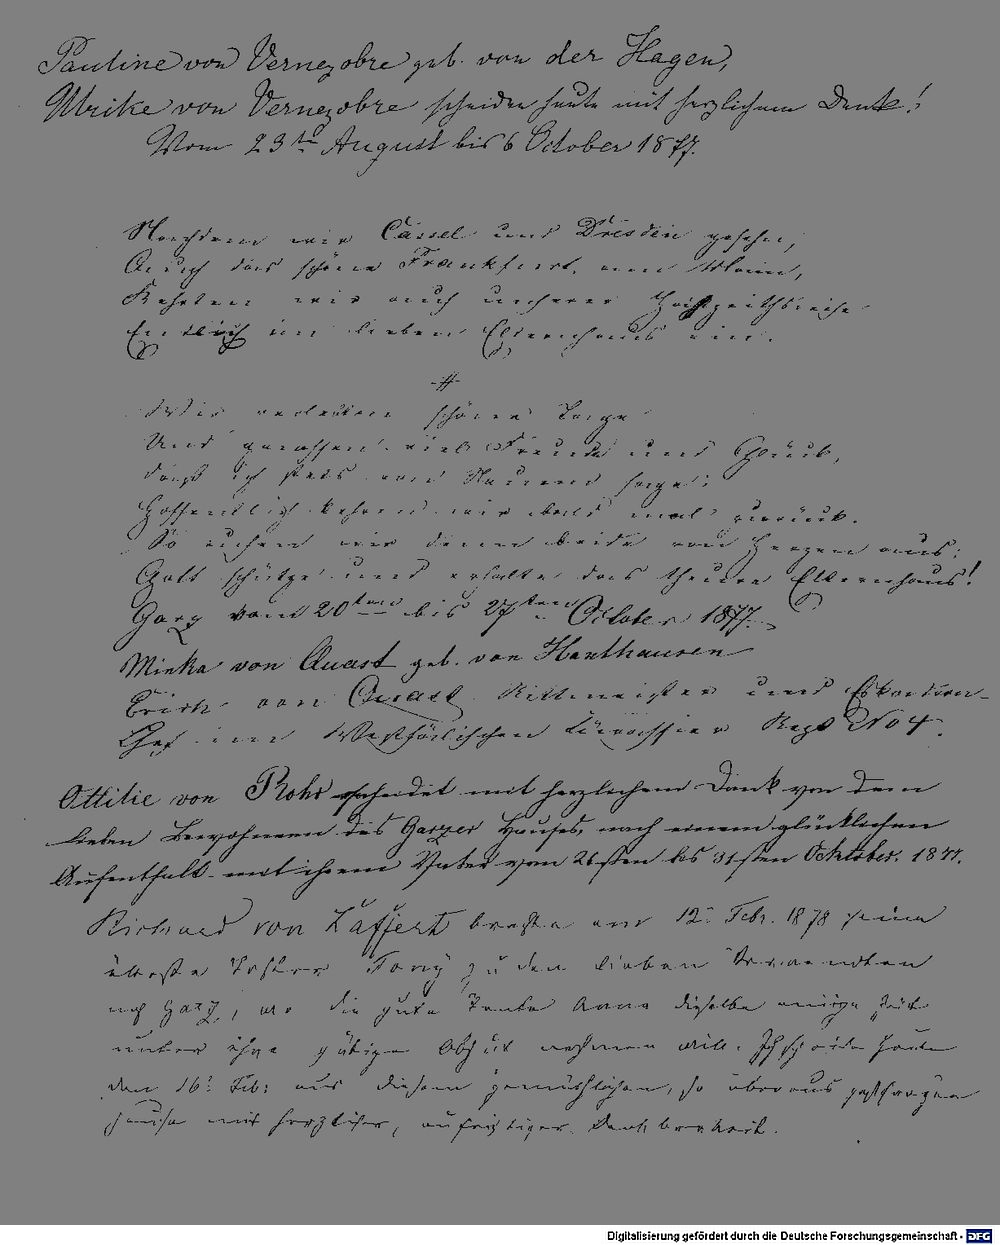 Pauline von Vernezobre geb. von der Hagen,
Ulrike von Vernezobre scheiden heute mit herzlichem Dank!
Vom 23ten August bis 6 October 1877.
Nachdem wir Cassel und Dresden gesehn,
Auch das schöne Frankfurt am Main,
Kehrten wir auch unserer Hochzeitsreise
Endlich im lieben Elternhaus ein.
Wir verlebten schöne Tage
Und genossen viel Freude und Glück,
daß ich stets von Neuem sage:
Hoffentlich kehren wir bald mal zurück.
So rufen wir denn beide von Herzen aus:
Gott schütze und erhalte das theure Elternhaus!
Garz vom 20ten bis 27ten October 1877.
Minka von Quast geb. von Hanthausen
Erich von Quast Rittmeister und Eskadron-
Chef im Westfälischen Kürassier Regt No 4.
Ottilie von Rohr scheidet mit herzlichem Dank von dem
lieben Bewohnern des Garzer Hauses, nach einem glücklichen
Aufenthalt mit ihrem Vater vom 26sten bis 31sten October. 1877.
Richard von Laffert brachte am 12. Febr. 1878 seine
älteste Tochter Tony zu den lieben Verwandten
nach Garz, wo die gute Tante Anna dieselbe einige Zeit
unter ihre gütige Obhut nehmen will. Ich scheide heute
den 16. Feb: aus diesem gemüthlichen, so überaus gastfreyen
Hause mit herzlicher, aufrichtiger Dankbarkeit.
Digitalisierung gefördert durch die Deutsche Forschungsgemeinschaft - DFG